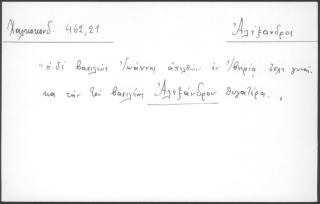 Χαλκοκονδ. 462,21 Ἀλέξανδρος
"ὁ δὲ βασιλεὺς Ἰωάννης ἀπελθὼν ἐν Ἰβηρίᾳ ἔσχε γυναῖ-
κα τὴν τοῦ βασιλέως Ἀλεξάνδρου θυγατέρα. "